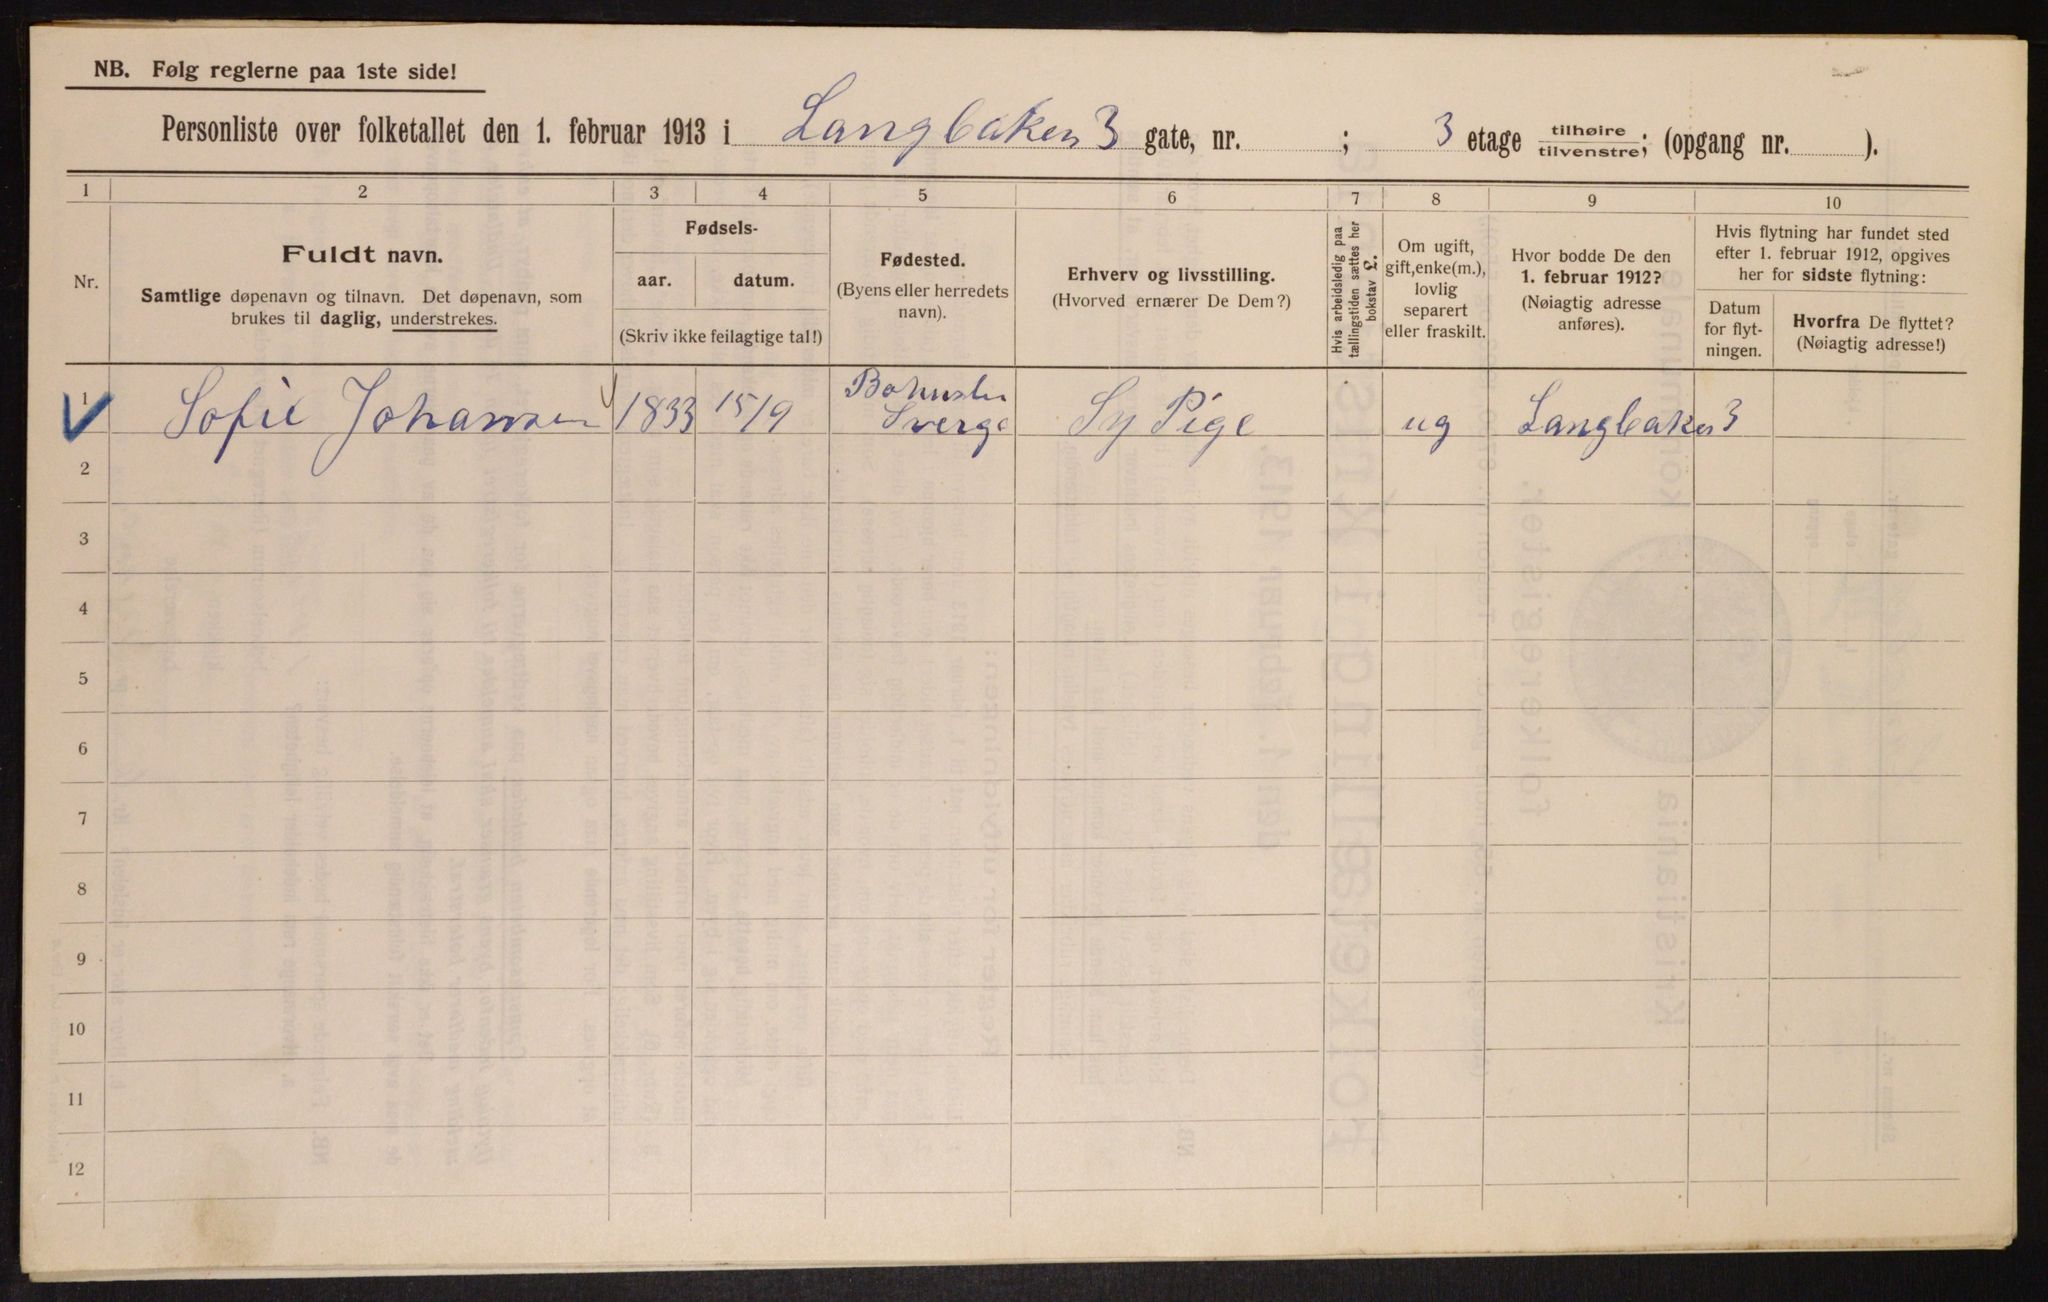 NB. Følg reglerne paa 1ste side!
Personliste over folketallet den 1. februar 1913 i Langbaken 3 gate, nr. ; 3 etage tilhøire tilvenstre; (opgang nr. ).
1 2 3 4 5 6 7 8 9 10
Nr.
Fuldt navn.
Samtlige døpenavn og tilnavn. Det døpenavn, som
brukes til daglig, understrekes.
Fødsels-
aar. datum.
(Skriv ikke feilagtige tal!)
Fødested.
(Byens eller herredets
navn).
Erhverv og livsstilling.
(Hvorved ernærer De Dem?)
Hvis arbeidsledig paa
tællingstiden sættes her
bokstav L.
Om ugift,
gift, enke(m.),
lovlig
separert
eller fraskilt.
Hvor bodde De den
1. februar 1912?
(Nøiagtig adresse
anføres).
Hvis flytning har fundet sted
efter 1. februar 1912, opgives
her for sidste flytning:
Datum
for flyt-
ningen.
Hvorfra De flyttet?
(Nøiagtig adresse!)
1 Sofie Johansen 1833 15/9 Bohuslen
Sverge Sy Pige ug Langbaken 3
2
3
4
5
6
7
8
9
10
11
12